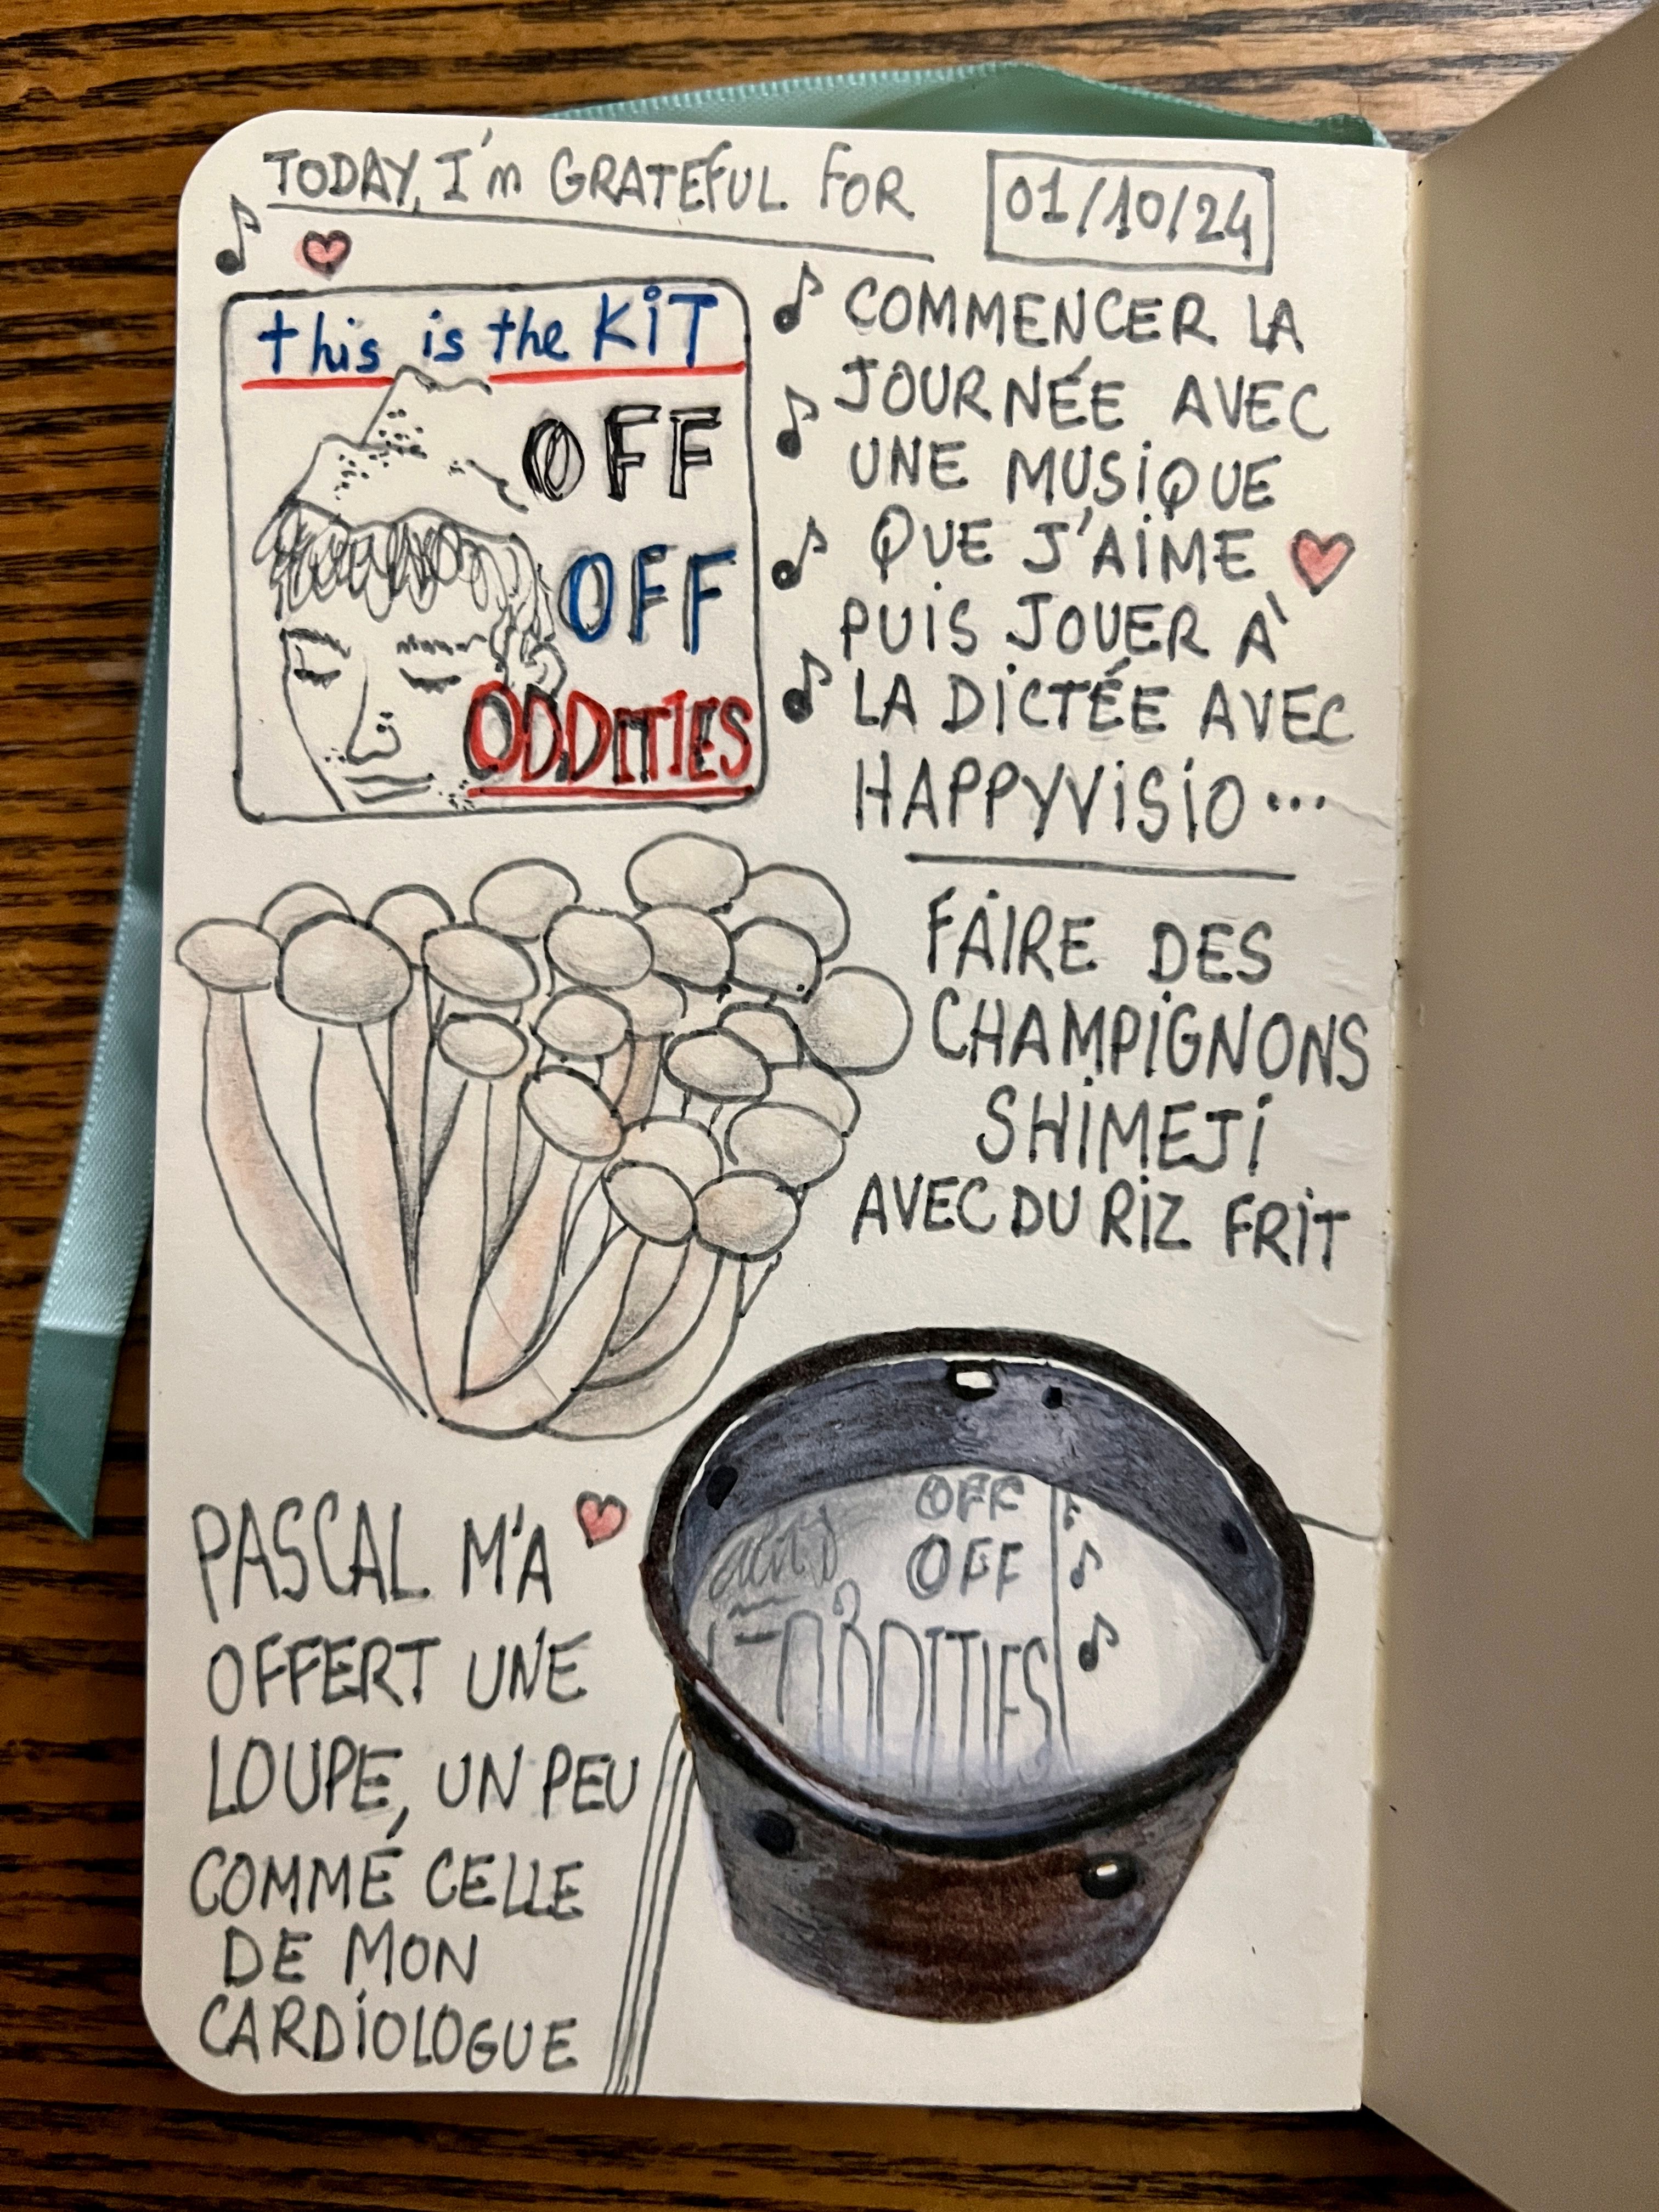 TODAY, I'm GRATEFUL FOR
01/10/24
this is the KiT
OFF
OFF
ODDITIES
COMMENCER LA
JOURNÉE AVEC
UNE MUSiQUE
QUE J'AiME
PUiS JOUER À
LA DiCTÉE AVEC
HAPPYViSiO...
FAIRE DES
CHAMPiGNONS
SHiMEJi
AVEC DU RiZ FRiT
OFF
OFF
ODDITIES
PASCAL M'A
OFFERT UNE
LOUPE, UN PEU
COMME CELLE
DE MON
CARDiOLOGUE